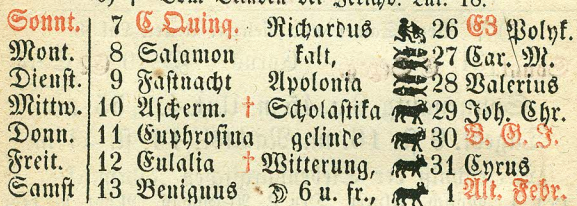 Sonnt. 7 C Quinq. Richardus 26 E3 Polyk.
Mont. 8 Salamon kalt, 27 Car. M.
Dienst. 9 Fastnacht Apolonia 28 Valerius
Mittw. 10 Ascherm. † Scholastika 29 Joh. Chr.
Donn. 11 Euphrosina gelinde 30
Freit. 12 Eulalia † Witterung, 31 Cyrus
Samst 13 Benignus ☽ 6 u. fr., 1 Alt. Febr.